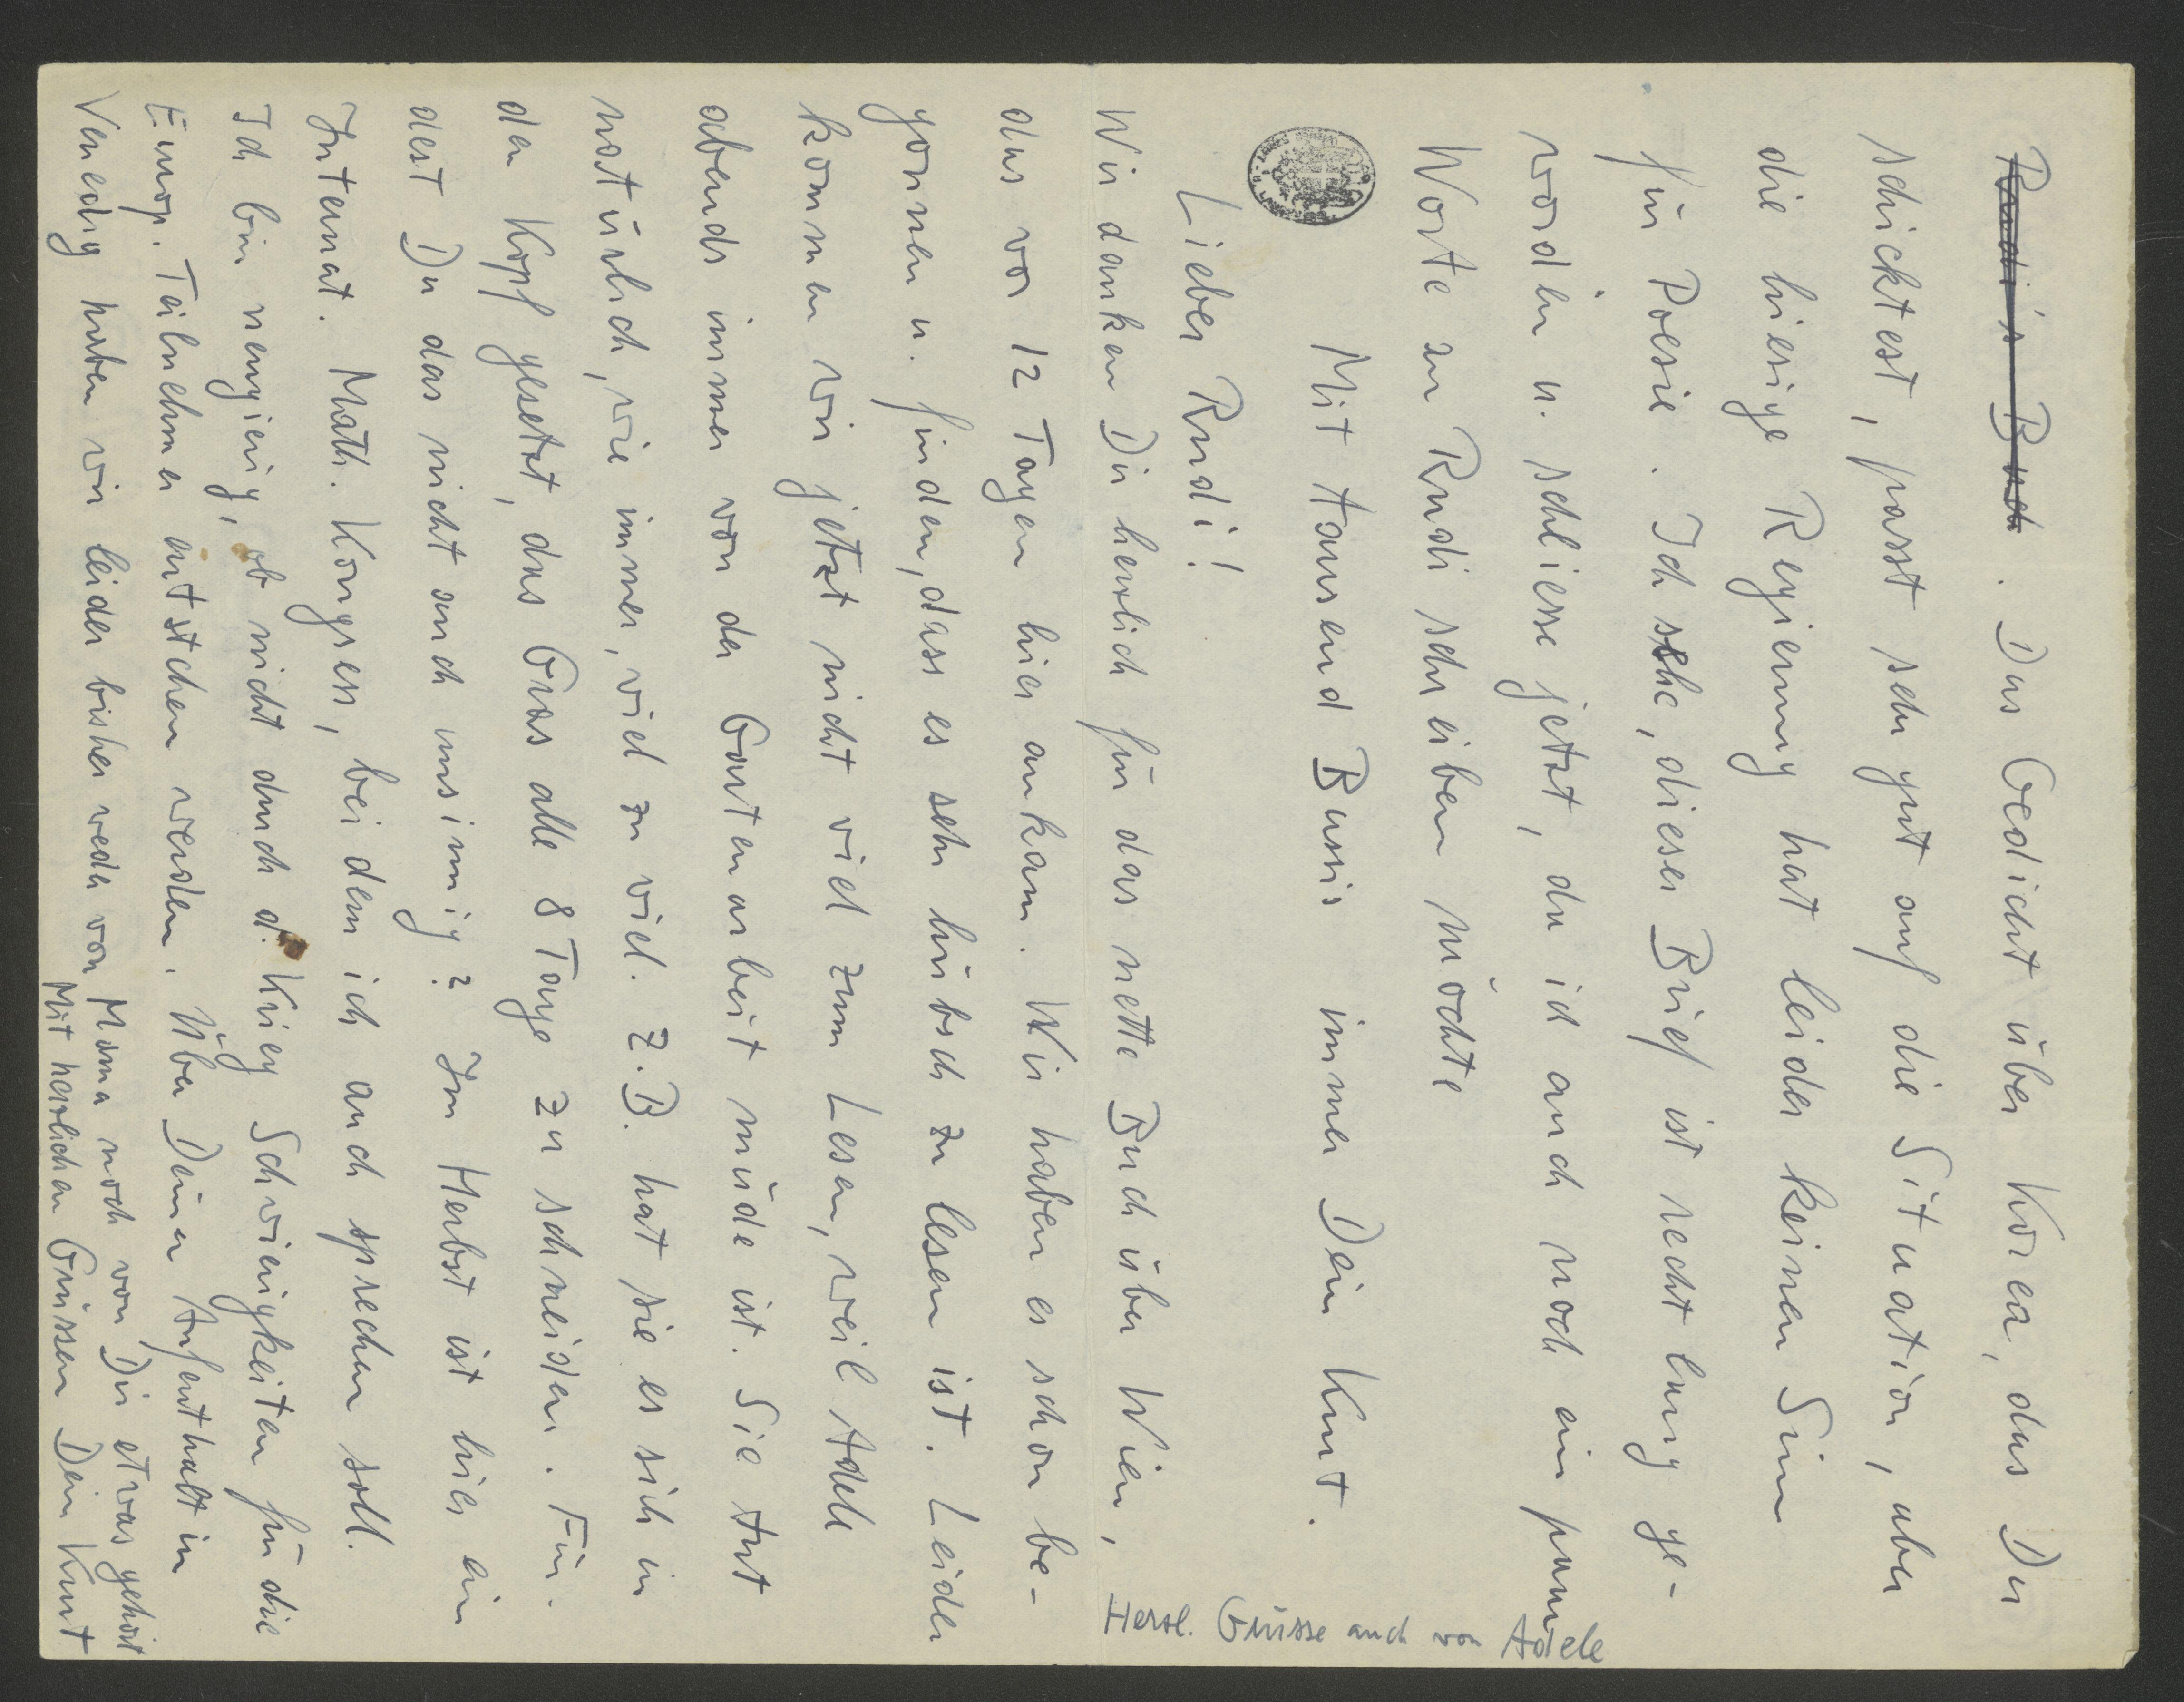 Rudi's Buch. Das Gedicht über Korea, das Du
schicktest, passt sehr gut auf die Situation, aber
die hiesige Regierung hat leider keinen Sinn
für Poesie. Ich sehe, dieser Brief ist recht lang ge-
worden u. schliesse jetzt, da ich auch noch ein paar
Worte an Rudi schreiben möchte
Mit tausend Bussis immer Dein Kurt.
Lieber Rudi!
Wir danken Dir herzlich für das nette Buch über Wien,
das vor 12 Tagen hier ankam. Wir haben es schon be-
gonnen u. finden, dass es sehr hübsch zu lesen ist. Leider
kommen wir jetzt nicht viel zum Lesen, weil Adele
abends immer von der Gartenarbeit müde ist. Sie tut
natürlich, wie immer, viel zu viel. Z.B. hat sie es sich in
den Kopf gesetzt, das Gras alle 8 Tage zu schneiden. Fin-
dest Du das nicht auch unsinnig? Im Herbst ist hier ein
Internat. Math. Kongress, bei dem ich auch sprechen soll.
Ich bin neugierig, ob nicht durch d. Krieg Schwierigkeiten für die
Europ. Teilnehmer entstehen werden. Über Deinen Aufenthalt in
Venedig haben wir leider bisher weder von Mama noch von Dir etwas gehört
Mit herzlichen Grüssen Dein Kurt
Herzl. Grüsse auch von Adele